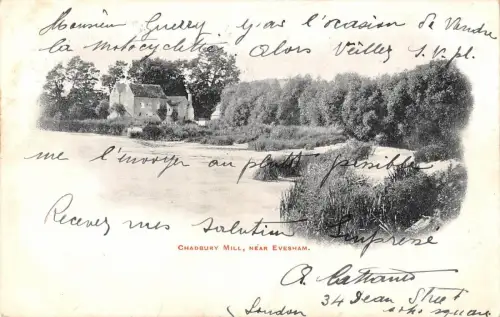 Monsieur Guerry. y'ai l'occasion de Vendre
la motocyclette Alors Veillez S.V.pl.
me l'envoyer au plus possible
Recevez mes Salution Impresé
CHADBURY MILL, NEAR EVESHAM.
A Cattaneo
34 Dean Street
London soho square